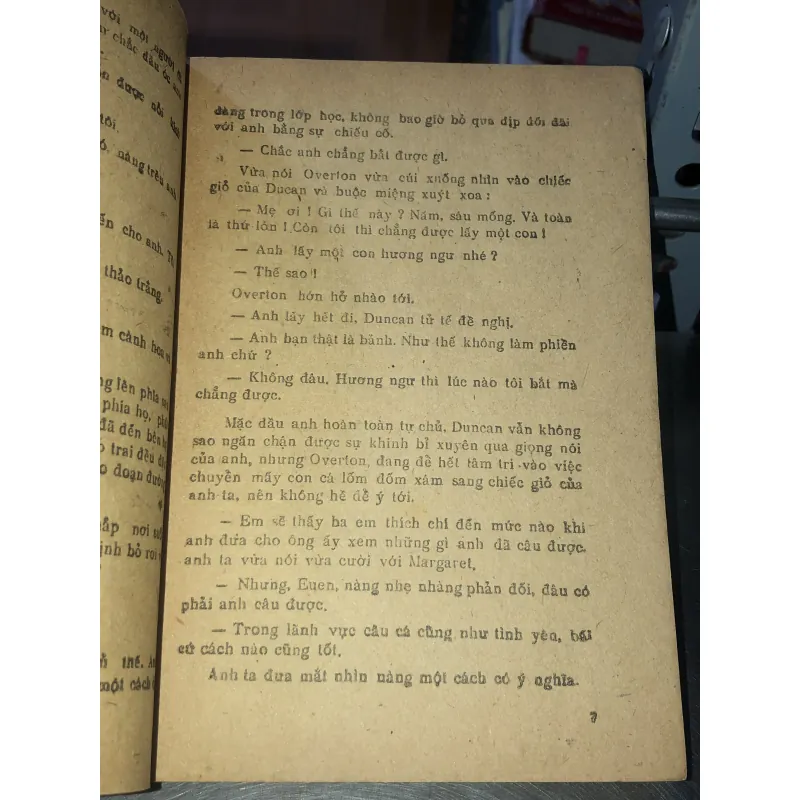 với một người đà
chắc đâu óc anh
được nỗi kinh
tôi.
nàng trêu anh
đến cho anh. T
thảo trắng.
cành hoa
ng lên phía
phía họ,
đã đến bên
trai đều
đoạn đường
ắp nơi
định bỏ rơi
thế.
một cách
dàng trong lớp học, không bao giờ bỏ qua dịp đối đãi
với anh bằng sự chiếu cố.
— Chắc anh chẳng bắt được gì.
Vừa nói Overton vừa cúi xuống nhìn vào chiếc
giỏ của Ducan và buộc miệng xuýt xoa :
— Mẹ ơi ! Gì thế này ? Năm, sáu mống. Và toàn
là thứ lớn ! Còn tôi thì chẳng được lấy một con !
— Anh lấy một con hương ngư nhé ?
— Thế sao !
Overton hớn hở nhào tới.
— Anh lấy hết đi, Duncan tử tế đề nghị.
— Anh bạn thật là bảnh. Như thế không làm phiền
anh chứ ?
— Không đâu. Hương ngư thì lúc nào tôi bắt mà
chẳng được.
Mặc dầu anh hoàn toàn tự chủ, Duncan vẫn không
sao ngăn chận được sự khinh bỉ xuyên qua giọng nói
của anh, nhưng Overton, đang để hết tâm trí vào việc
chuyển mấy con cá lốm đốm xám sang chiếc giỏ của
anh ta, nên không hề để ý tới.
— Em sẽ thấy ba em thích chí đến mức nào khi
anh đưa cho ông ấy xem những gì anh đã câu được.
anh ta vừa nói vừa cười với Margaret.
— Nhưng, Euen, nàng nhẹ nhàng phản đối, đâu có
phải anh câu được.
— Trong lãnh vực câu cá cũng như tình yêu, bất
cứ cách nào cũng tốt.
Anh ta đưa mắt nhìn nàng một cách có ý nghĩa.
7